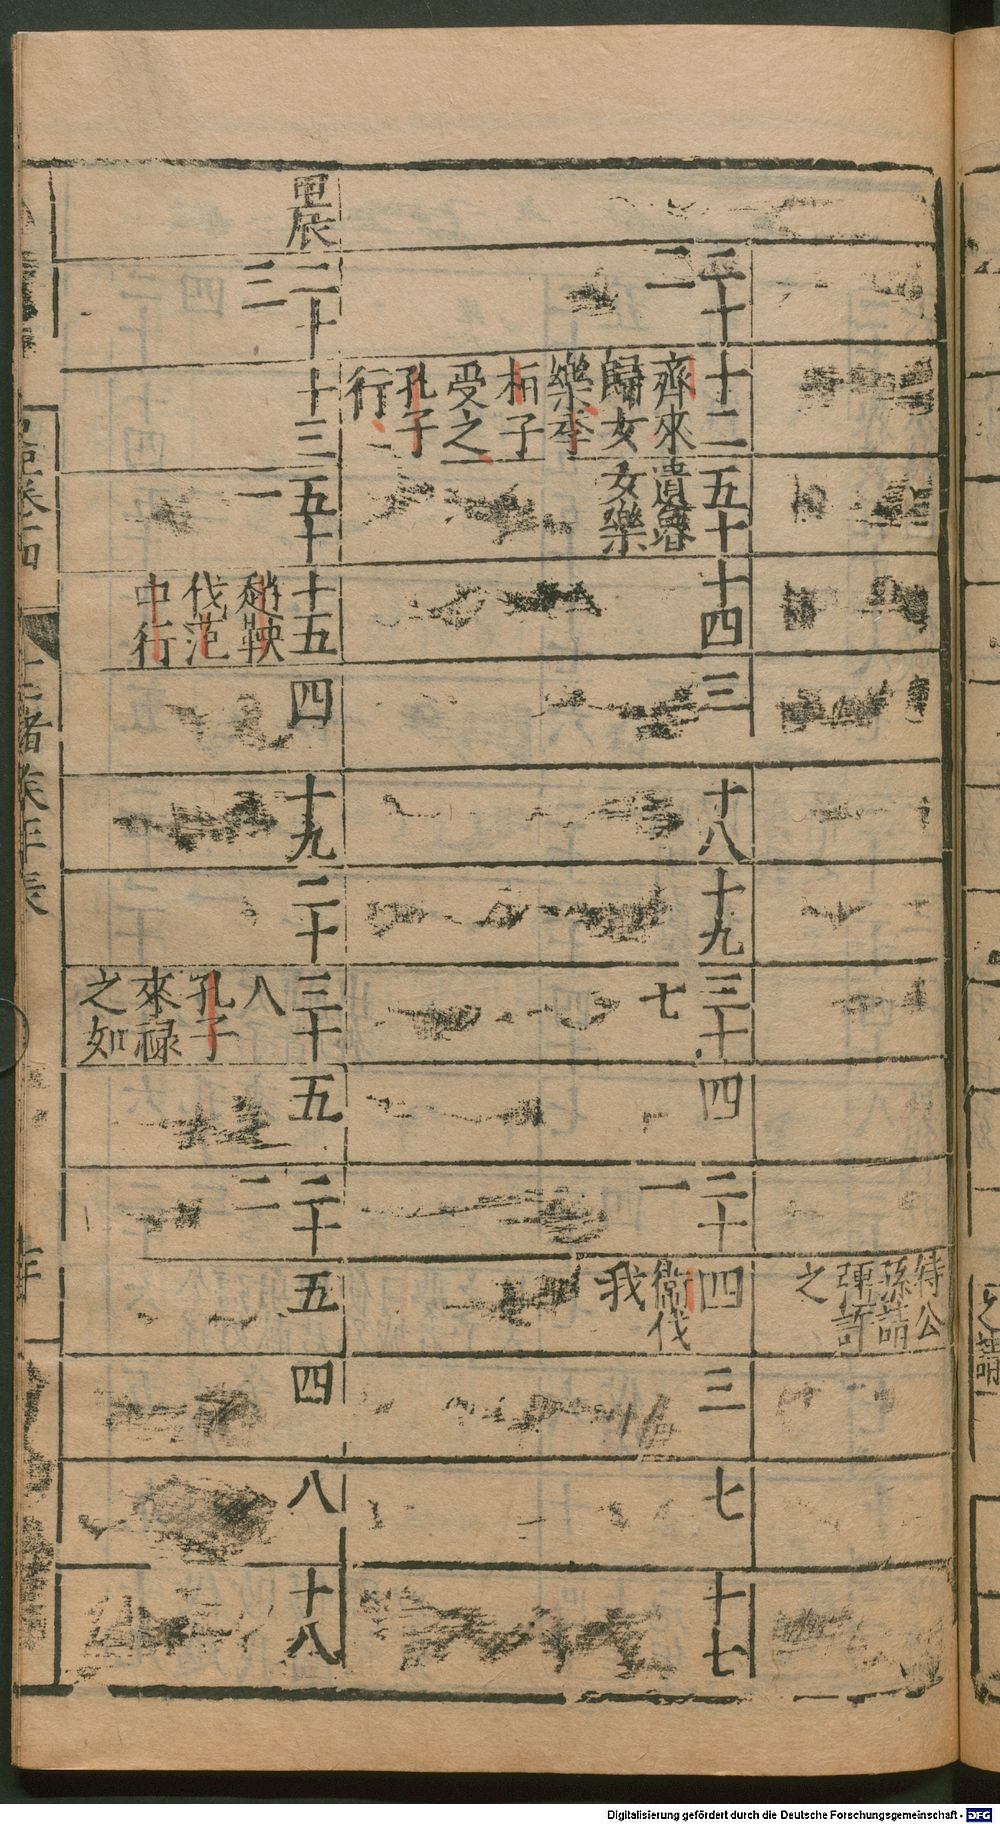 待公
孫請
彊許
之
三十
二
十二
齊來
歸女
樂季
桓子
受之
孔子
行
五十
遺魯
女樂
十四
三
十八
十九
三十
七
四
二十
一
四
衛伐
我
三
七
十七
甲辰
二十
三
十三
五十
一
十五
趙鞅
伐范
中行
四
十九
二十
三十
八
孔子
來祿
之如
五
二十
二
五
四
八
十八
十二諸侯年表
Digitalisierung gefördert durch die Deutsche Forschungsgemeinschaft - DFG